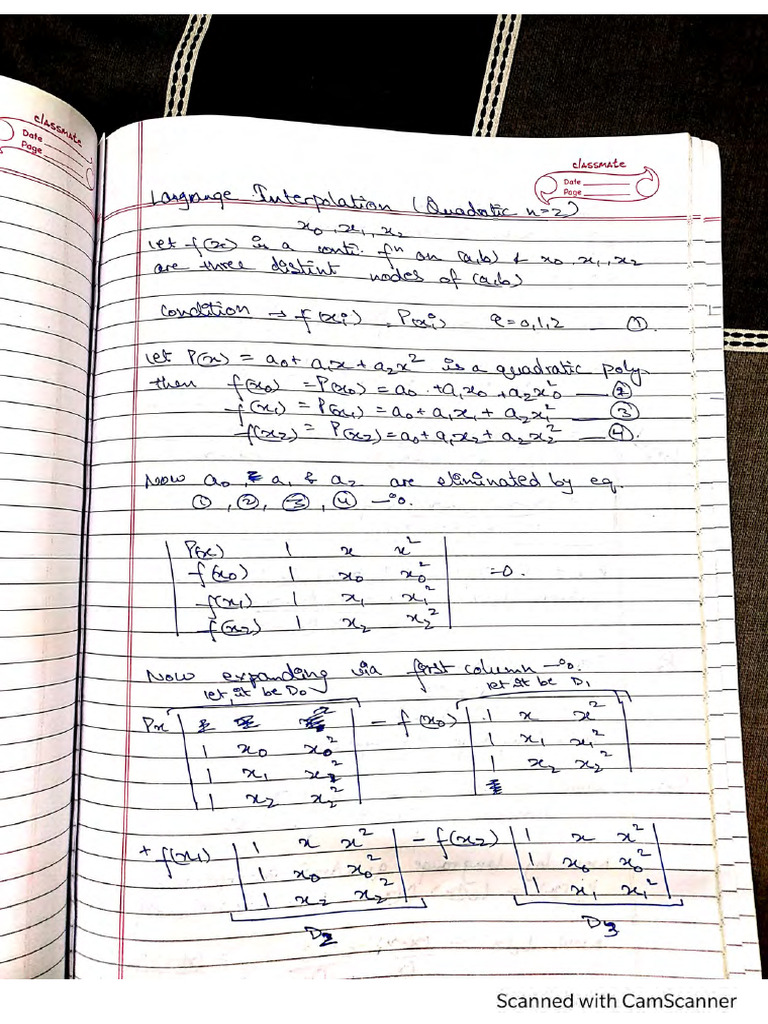 classmate
Date
Page
classmate
Date
Page
Lagrange Interpolation (Quadratic n=2)
x0, x1, x2
Let f(x) is a conti. fⁿ on (a,b) & x0, x1, x2
are three distint nodes of (a,b)
Condition → f(xi) = P(xi) i=0,1,2 — ①.
Let P(x) = a0 + a1x + a2x² is a quadratic poly.
then f(x0) = P(x0) = a0 + a1x0 + a2x0² — ②
f(x1) = P(x1) = a0 + a1x1 + a2x1² — ③
f(x2) = P(x2) = a0 + a1x2 + a2x2² — ④.
Now a0, a1 & a2 are eliminated by eq.
①, ②, ③, ④ →
| P(x) 1 x x² |
| f(x0) 1 x0 x0² | =0.
| f(x1) 1 x1 x1² |
| f(x2) 1 x2 x2² |
Now expanding via first column →
let it be D0 let it be D1
Px | 1 x0 x0² | - f(x0) | 1 x x² |
| 1 x1 x2² | | 1 x1 x1² |
| 1 x2 x2² | | 1 x2 x2² |
+ f(x1) | 1 x x² | - f(x2) | 1 x x² |
| 1 x0 x0² | | 1 x0 x0² |
| 1 x2 x2² | | 1 x1 x1² |
D2 D3
Scanned with CamScanner